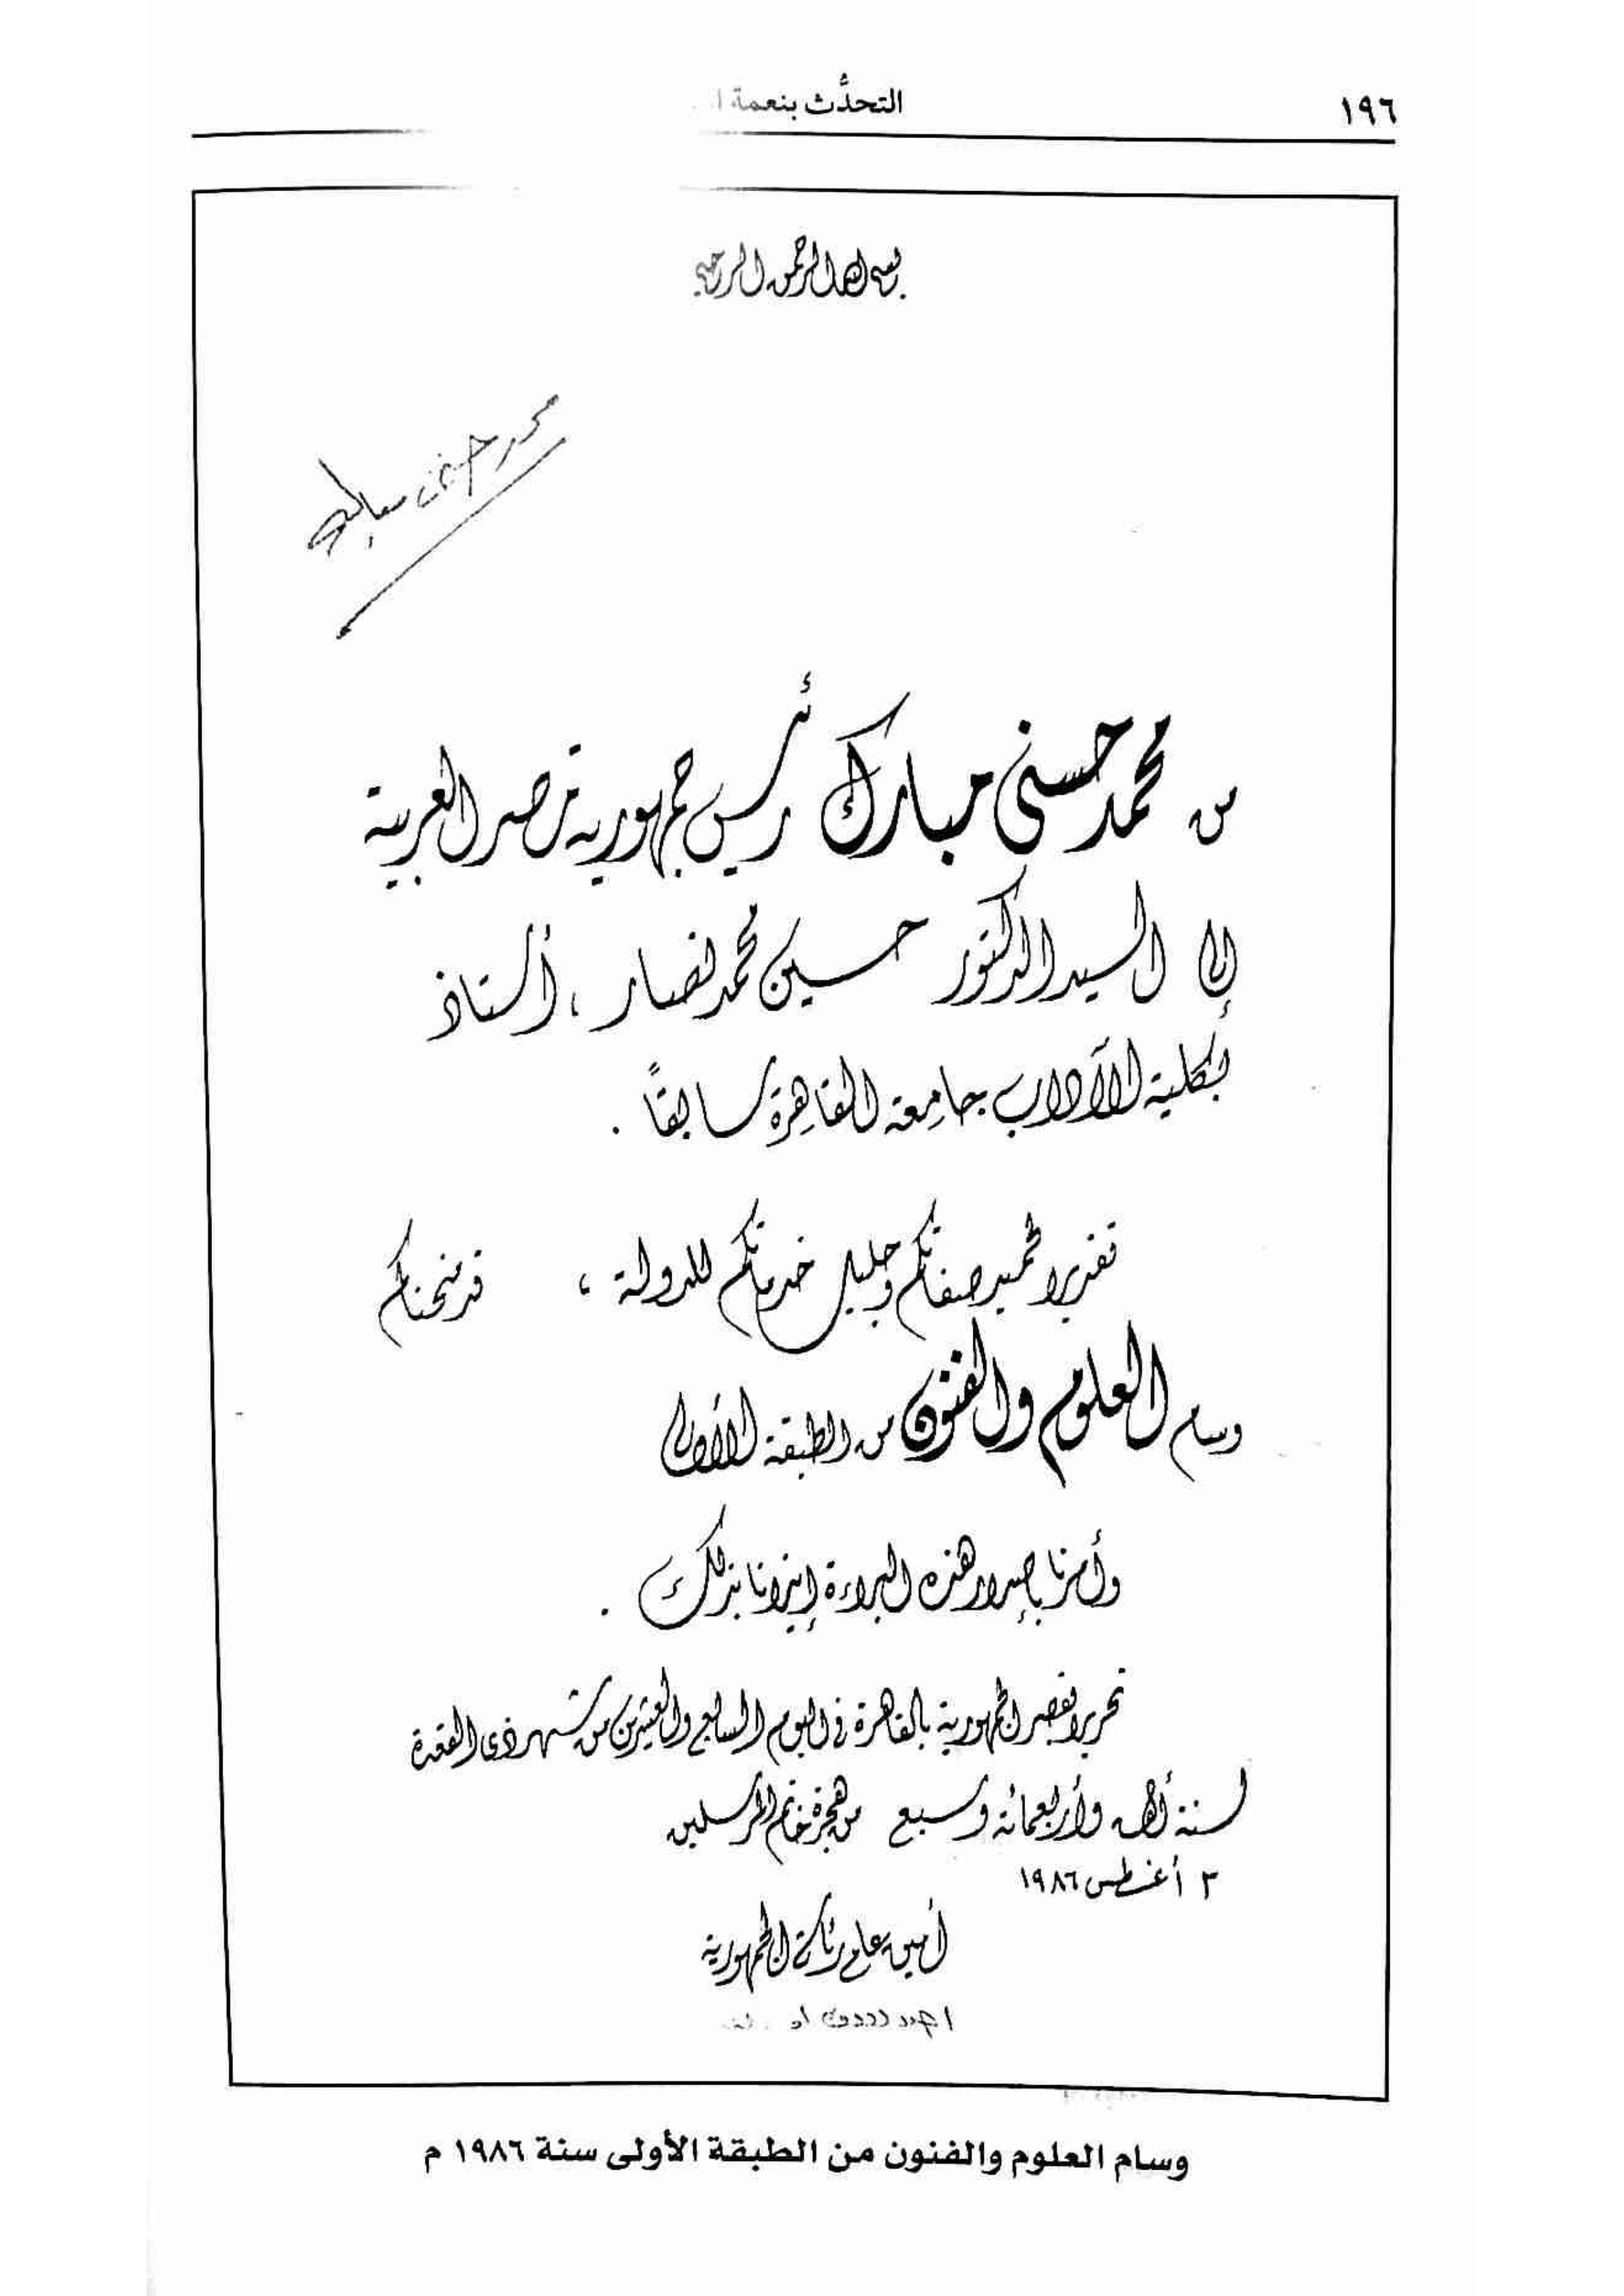 ١٩٦
التحدُّث بنعمة
بسم الله الرحمن الرحيم
محمد حسني مبارك
من محمد حسنى مبارك رئيس جمهورية مصر العربية
إلى السيد الدكتور حسين محمد نصار ، أستاذ
بكلية الآداب جامعة القاهرة سابقاً .
تقديرا لحميد صفاتكم وجليل خدماتكم للدولة ، قد منحناكم
وسام العلوم والفنون من الطبقة الأولى
وأمرنا بإصدار هذه البراءة إيذانا بذلك .
تحريرا بقصر الجمهورية بالقاهرة فى اليوم السابع والعشرين من شهر ذى القعدة
لسنة ألف وأربعمائة وسبع من هجرة خاتم المرسلين
٢ أغسطس ١٩٨٦
أمين عام رئاسة الجمهورية
وسام العلوم والفنون من الطبقة الأولى سنة ١٩٨٦ م